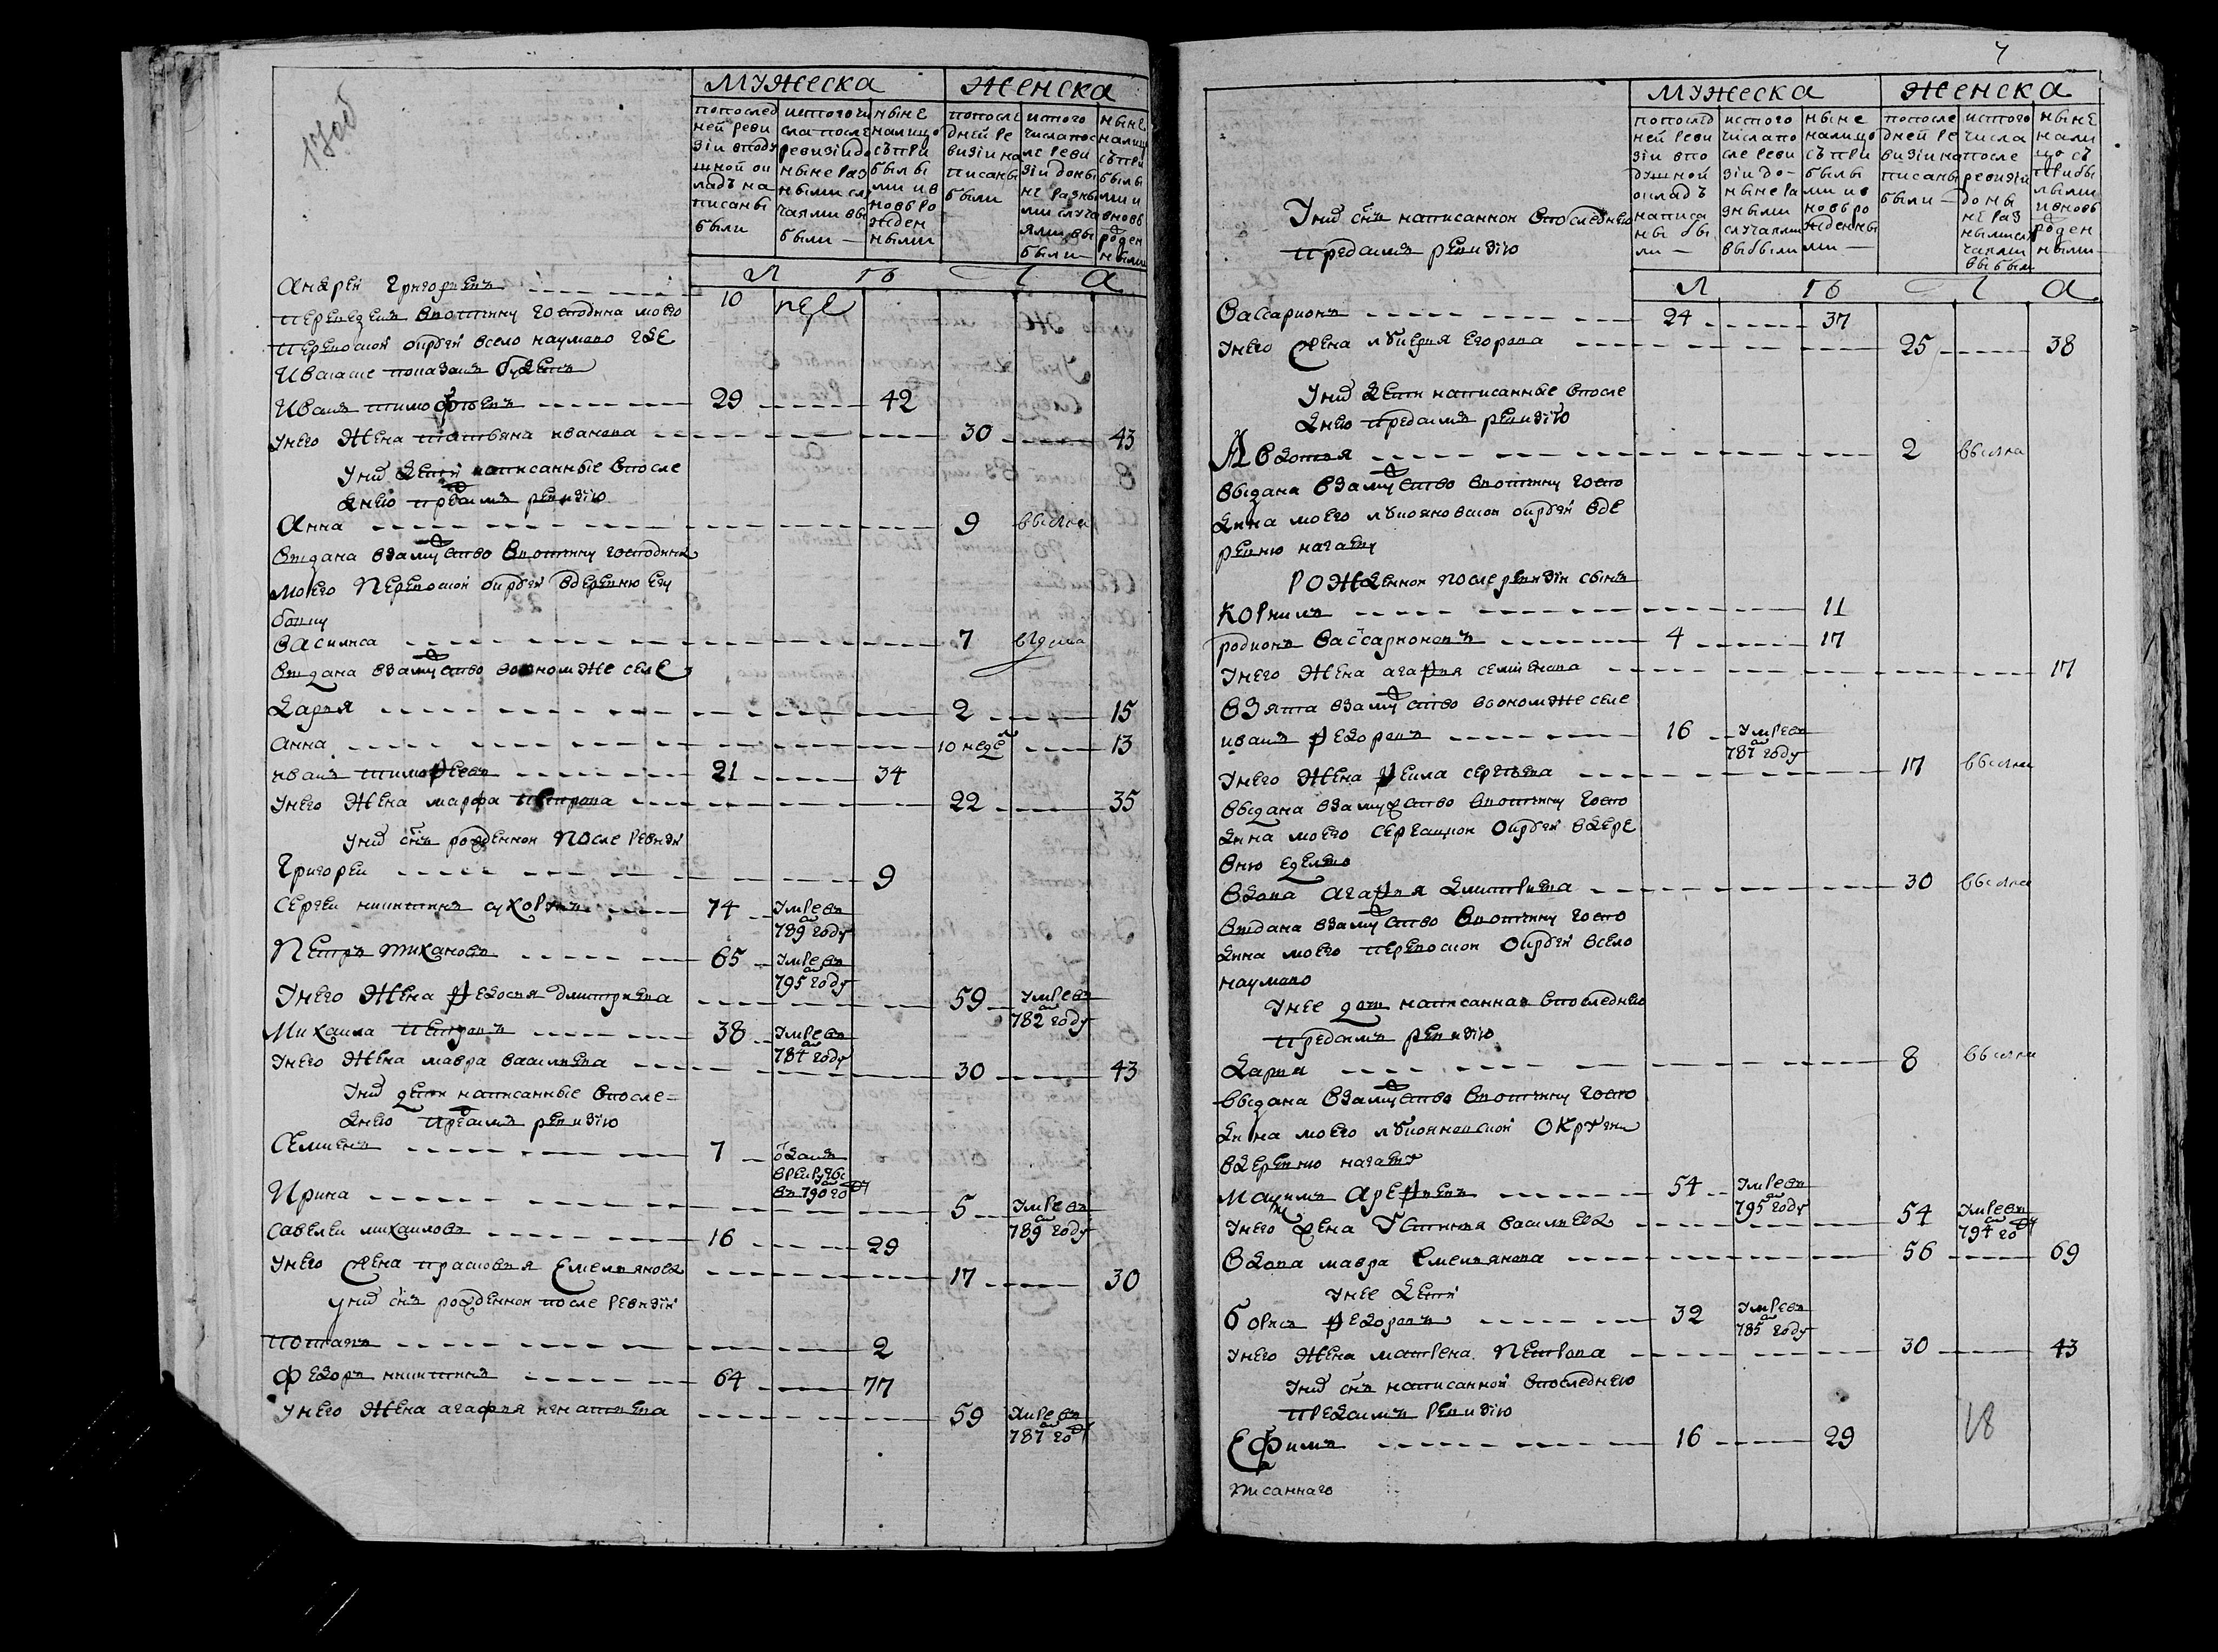 17 об
Мужеска
Женска
попослед
ней реви
зіи вподу
шной ок
ладъ на
писаны
были
истого чи
сла после
ревизіи до
ныне раз
ными слу
чаями вы
были
ныне
налицо
съ при
былы
ми и в
новь ро
жден
ными
попосле
дней ре
визіи на
писаны
были
истого
числа пос
ле реви
зіи доны
не разны
ми случа
ями вы
были
ныне
налицо
съ при
былы
ми и
вновь
рожден
ными
л
ѣ
т
а
Андреи Григорьевъ
10
переведенъввотчину господина моего
перевоской округи всело наумово где
и всказке показанъ будетъ
Иванъ тимофѣевъ 29 42
унего жена татьяна иванова 30 43
унихъ дети написанные впосле
днею предъ симъ ревизію
Анна 9
выдана взамужство ввотчину господина
моего перевоской округи вдеревню
Василиса 7
выдана взамужство вооном же селе
Дарья 2 15
анна 10 недель 13
иванъ тимофеевъ 21 34
унего жена марфа петрова 22 35
унихъ снъ рожденнои после ревизи
Григореи 9
Сергеи никитинъ 74 умре въ
789 году
Петръ тихановъ 65 умре въ
795 году
унего жена федосья дмитриева 59 умре въ
782 году
Михаила петровъ 38 умре въ
784 году
унего жена мавра василиева 30 43
унихъ дети написанные впосле=
днею предъ симъ ревизію
Семиенъ 7 оданъ
врекруты
въ 790 году
Ирина 5 умре въ
789 году
Савелеи михаиловъ 16 29
унего жена прасковья Емельянова 17 30
унихъ снъ рожденнои после ревизіи
потапъ 2
Федоръ никитинъ 64 77
унего жена агафья игнатьева 59 умре въ
787 году
7
Мужеска
Женска
попослед
ней реви
зіи впо
душной
окладъ
написа
ны бы
ли
истого
числа по
сле реви
зіи до-
ныне ра
зными
случаями
выбыли
ныне
налицо
съ при
былы
ми и в
новь ро
жденны
ми
попосле
дней ре
визіи на
писаны
были
истого
числа
после
ревизіи
доны
не раз
ными слу
чаями
выбыли
ныне
нали
цо съ
прибы
лыми
и вновь
рожден
ными
л
ѣ
т
а
Унихъ снъ написаннои впоследнию
предсимъ ревизію
Вассарионъ 24 37
унего жена лукерья егорова 25 38
Унихъ дети написанные впосле
днею предсимъ ревизію
Авдотья 2
выдана взамужство ввотчину госпо
дина моего лукояновской округи вде
ревню
Рожденнои после ревизіи сынъ
Корнилъ 11
родионъ Вассарионовъ 4 17
Унего жена агафья семионова 17
взята взамужство вооном же селе
иванъ федоровъ 16 умре въ
787 году
Унего жена фекла сергѣева 17
выдана взамужство ввотчину госпо
дина моего сергацкои округи вдере
вню
вдова агафья дмитриева 30
выдана взамужство ввотчину госпо
дина моего перевоскои округи всело
наумово
унее дочь написанная впоследнию
предсимъ ревизію
Дарья 8
выдана взамужство ввотчину госпо
дина моего лукояновской округи
вдеревню
Максимъ арефьевъ 54 умре въ
795 году
унего жена устинья васильева 54 умре въ
794 году
вдова мавра емельянова 56 69
унее дети
Борисъ федоровъ 32 умре въ
785 году
унего жена матрена петрова 30 43
унихъ снъ написанной впоследнею
предсимъ ревизію
Ефимъ 16 29
18
писаннаго